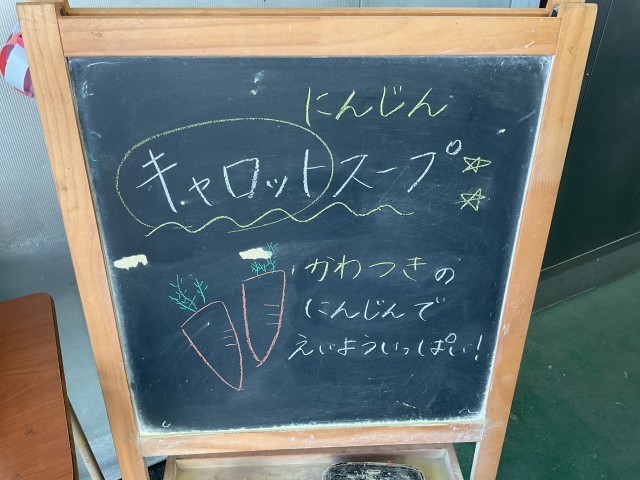 にんじん
キャロットスープ☆
☆
かわつきの
にんじんで
えいよういっぱい!